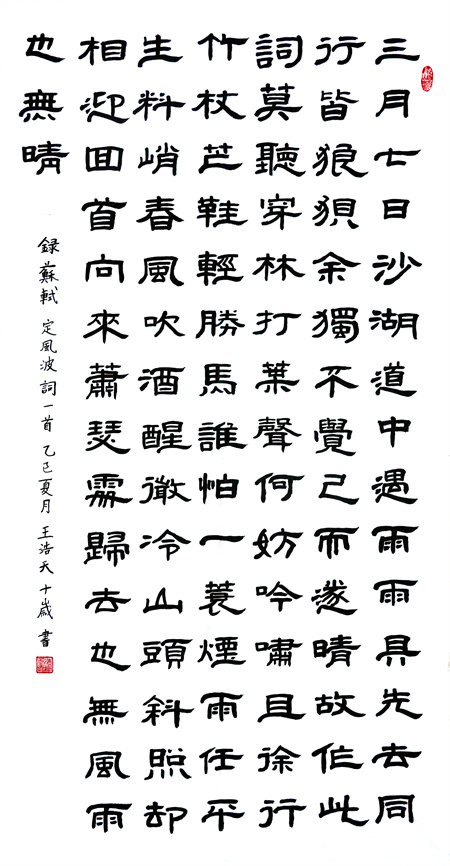 三月七日沙湖道中遇雨雨具先去同
行皆狼狽余獨不覺已而遂晴故作此
詞莫聽穿林打葉聲何妨吟嘯且徐行
竹杖芒鞋輕勝馬誰怕一蓑煙雨任平
生料峭春風吹酒醒微冷山頭斜照却
相迎回首向來蕭瑟處歸去也無風雨
也無晴
録蘇軾 定風波 詞一首 乙巳夏月 王浩天 十歲 書